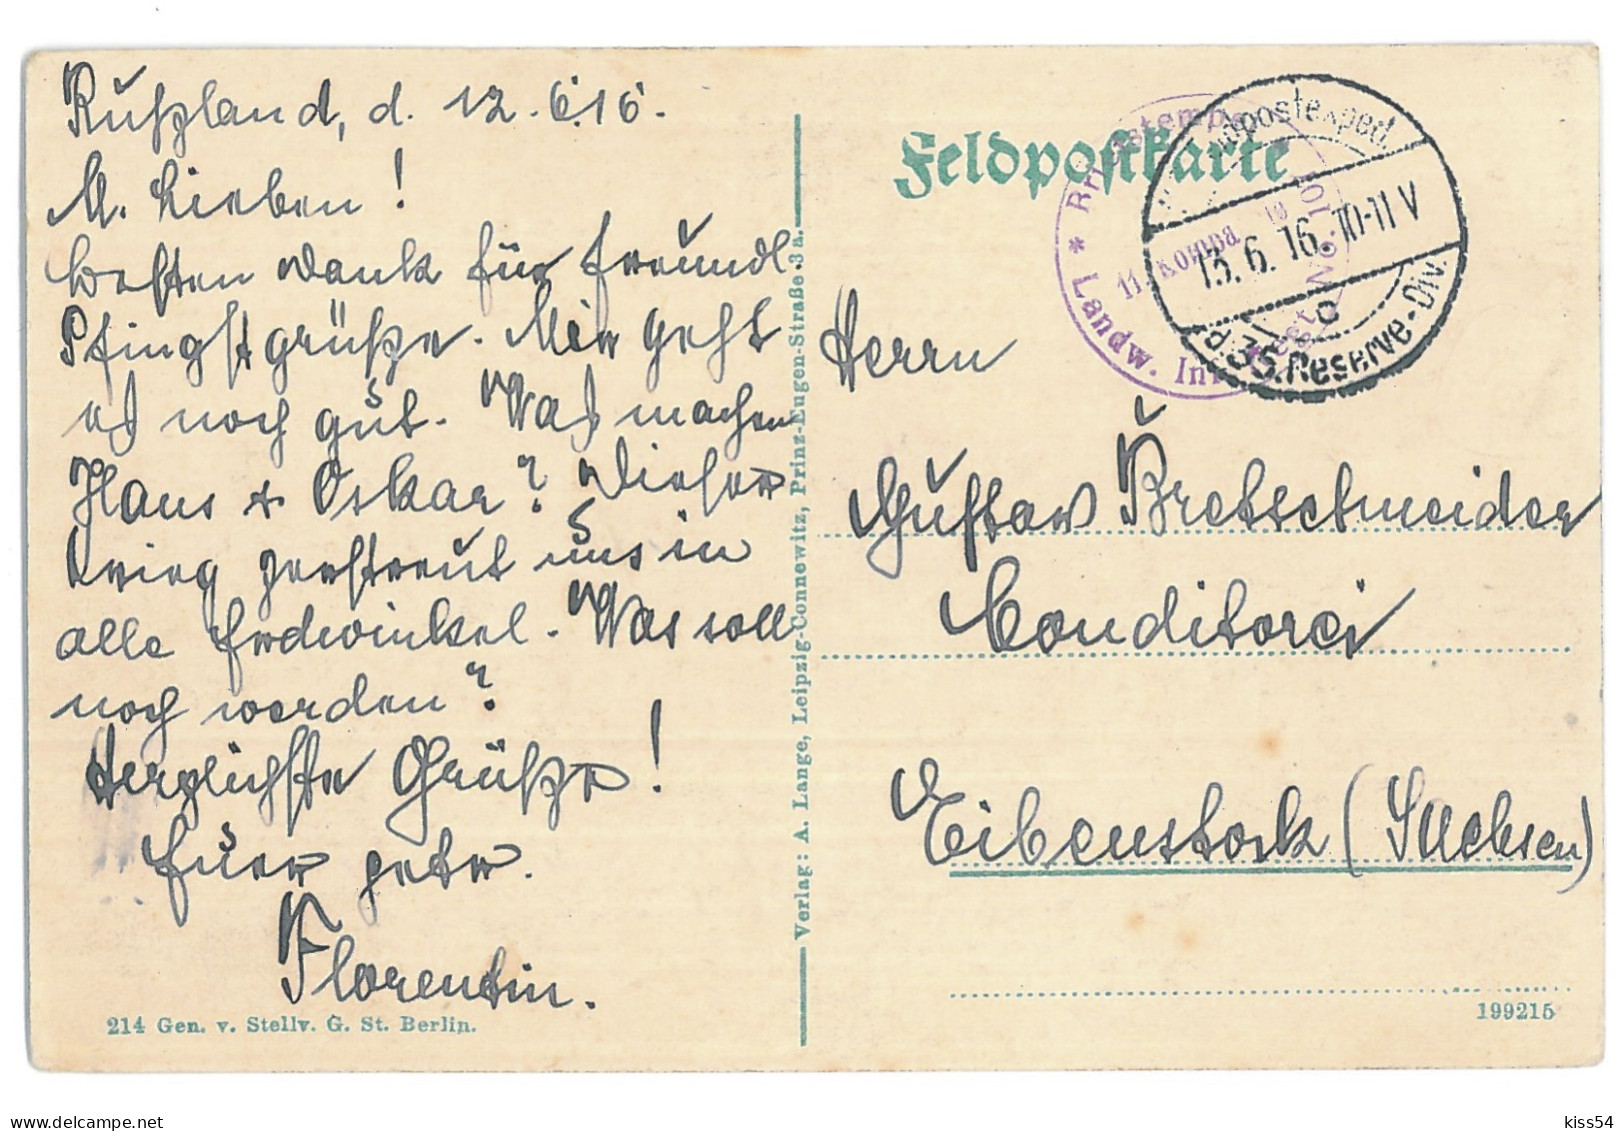 Rußland, d. 12.6.16.
M. Lieben!
Besten Dank für freundl.
Pfingstgrüße. Mir geht
es noch gut. Was machen
Hans + Oskar? Dieser
Krieg zerstreut uns in
alle Erdwinkel. Was soll
noch werden?
Herzlichste Grüße!
Euer getr.
Florentin.
214 Gen. v. Stellv. G. St. Berlin.
Verlag: A. Lange, Leipzig-Connewitz, Prinz-Eugen-Straße 3a.
Feldpostkarte
Landw. Inf.
No. 101
11. Kompa
13.6.16. 10-11 V
d. 35. Reserve-Div.
Herrn
Gustav Bretschneider
Conditorei
Eibenstock (Sachsen)
199215
www.delcampe.net
kiss54